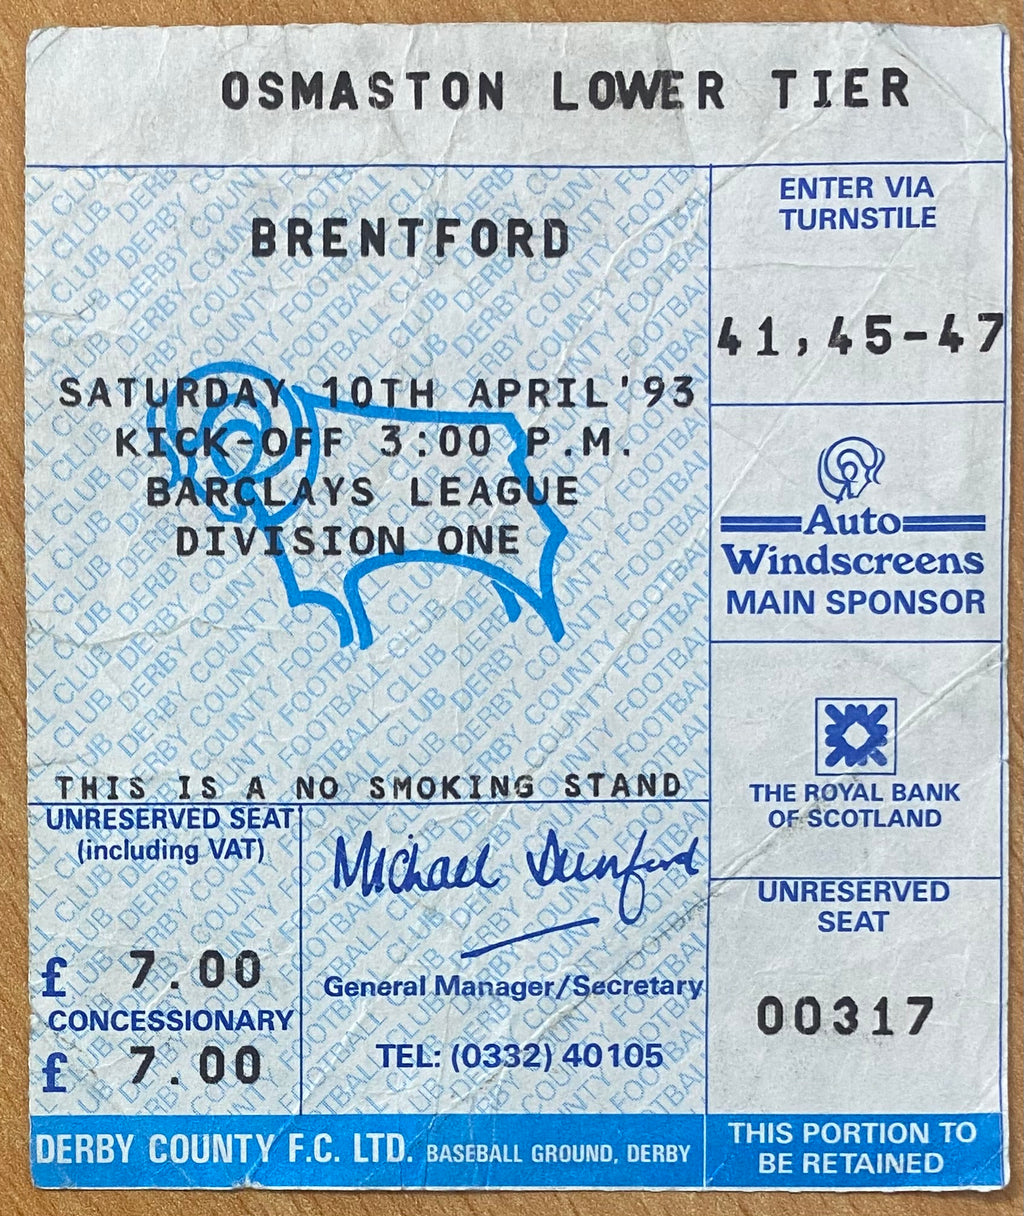 OSMASTON LOWER TIER
BRENTFORD
SATURDAY 10TH APRIL '93
KICK-OFF 3:00 P.M.
BARCLAYS LEAGUE
DIVISION ONE
THIS IS A NO SMOKING STAND
UNRESERVED SEAT
(including VAT)
£ 7.00
CONCESSIONARY
£ 7.00
Michael Dunford
General Manager/Secretary
TEL: (0332) 40105
DERBY COUNTY F.C. LTD. BASEBALL GROUND, DERBY
ENTER VIA
TURNSTILE
41,45-47
Auto
Windscreens
MAIN SPONSOR
THE ROYAL BANK
OF SCOTLAND
UNRESERVED
SEAT
00317
THIS PORTION TO
BE RETAINED
DERBY COUNTY FOOTBALL CLUB